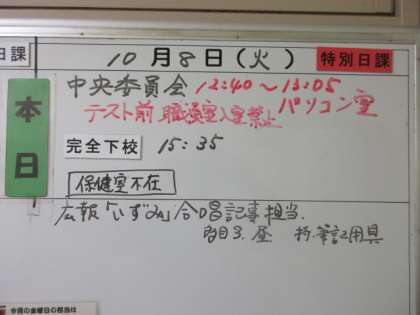 日課
10月8日(火) 特別日課
本日
中央委員会 12:40〜13:05
パソコン室
テスト前 職員室入室禁止
完全下校 15:35
保健室不在
広報「いずみ」合唱記事担当.
3. 昼 持.筆記用具
今週の金曜日の担当は